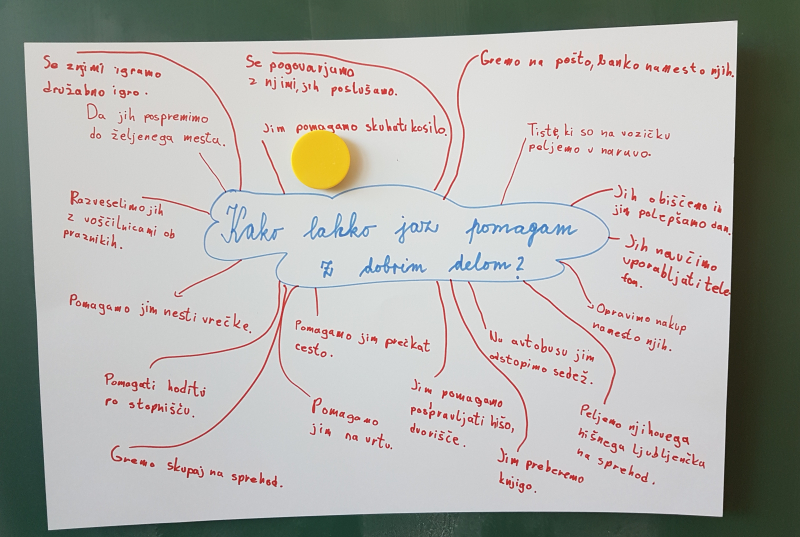 Se z njimi igramo
družabno igro.
Se pogovarjamo
z njimi, jih poslušamo.
Gremo na pošto, banko namesto njih.
Da jih pospremimo
do željenega mesta.
Jim pomagamo skuhati kosilo.
Tiste, ki so na vozičku
peljemo v naravo.
Razveselimo jih
z voščilnicami ob
praznikih.
Kako lahko jaz pomagam
z dobrim delom?
Jih obiščemo in
jim polepšamo dan.
Jih naučimo
uporabljati tele
fon.
Pomagamo jim nesti vrečke.
Opravimo nakup
namesto njih.
Pomagamo jim prečkat
cesto.
Na avtobusu jim
odstopimo sedež.
Pomagati hoditi
po stopnišču.
Pomagamo
jim na vrtu.
Jim pomagamo
pospravljati hišo,
dvorišče.
Peljemo njihovega
hišnega ljubljenčka
na sprehod.
Gremo skupaj na sprehod.
Jim preberemo
knjigo.